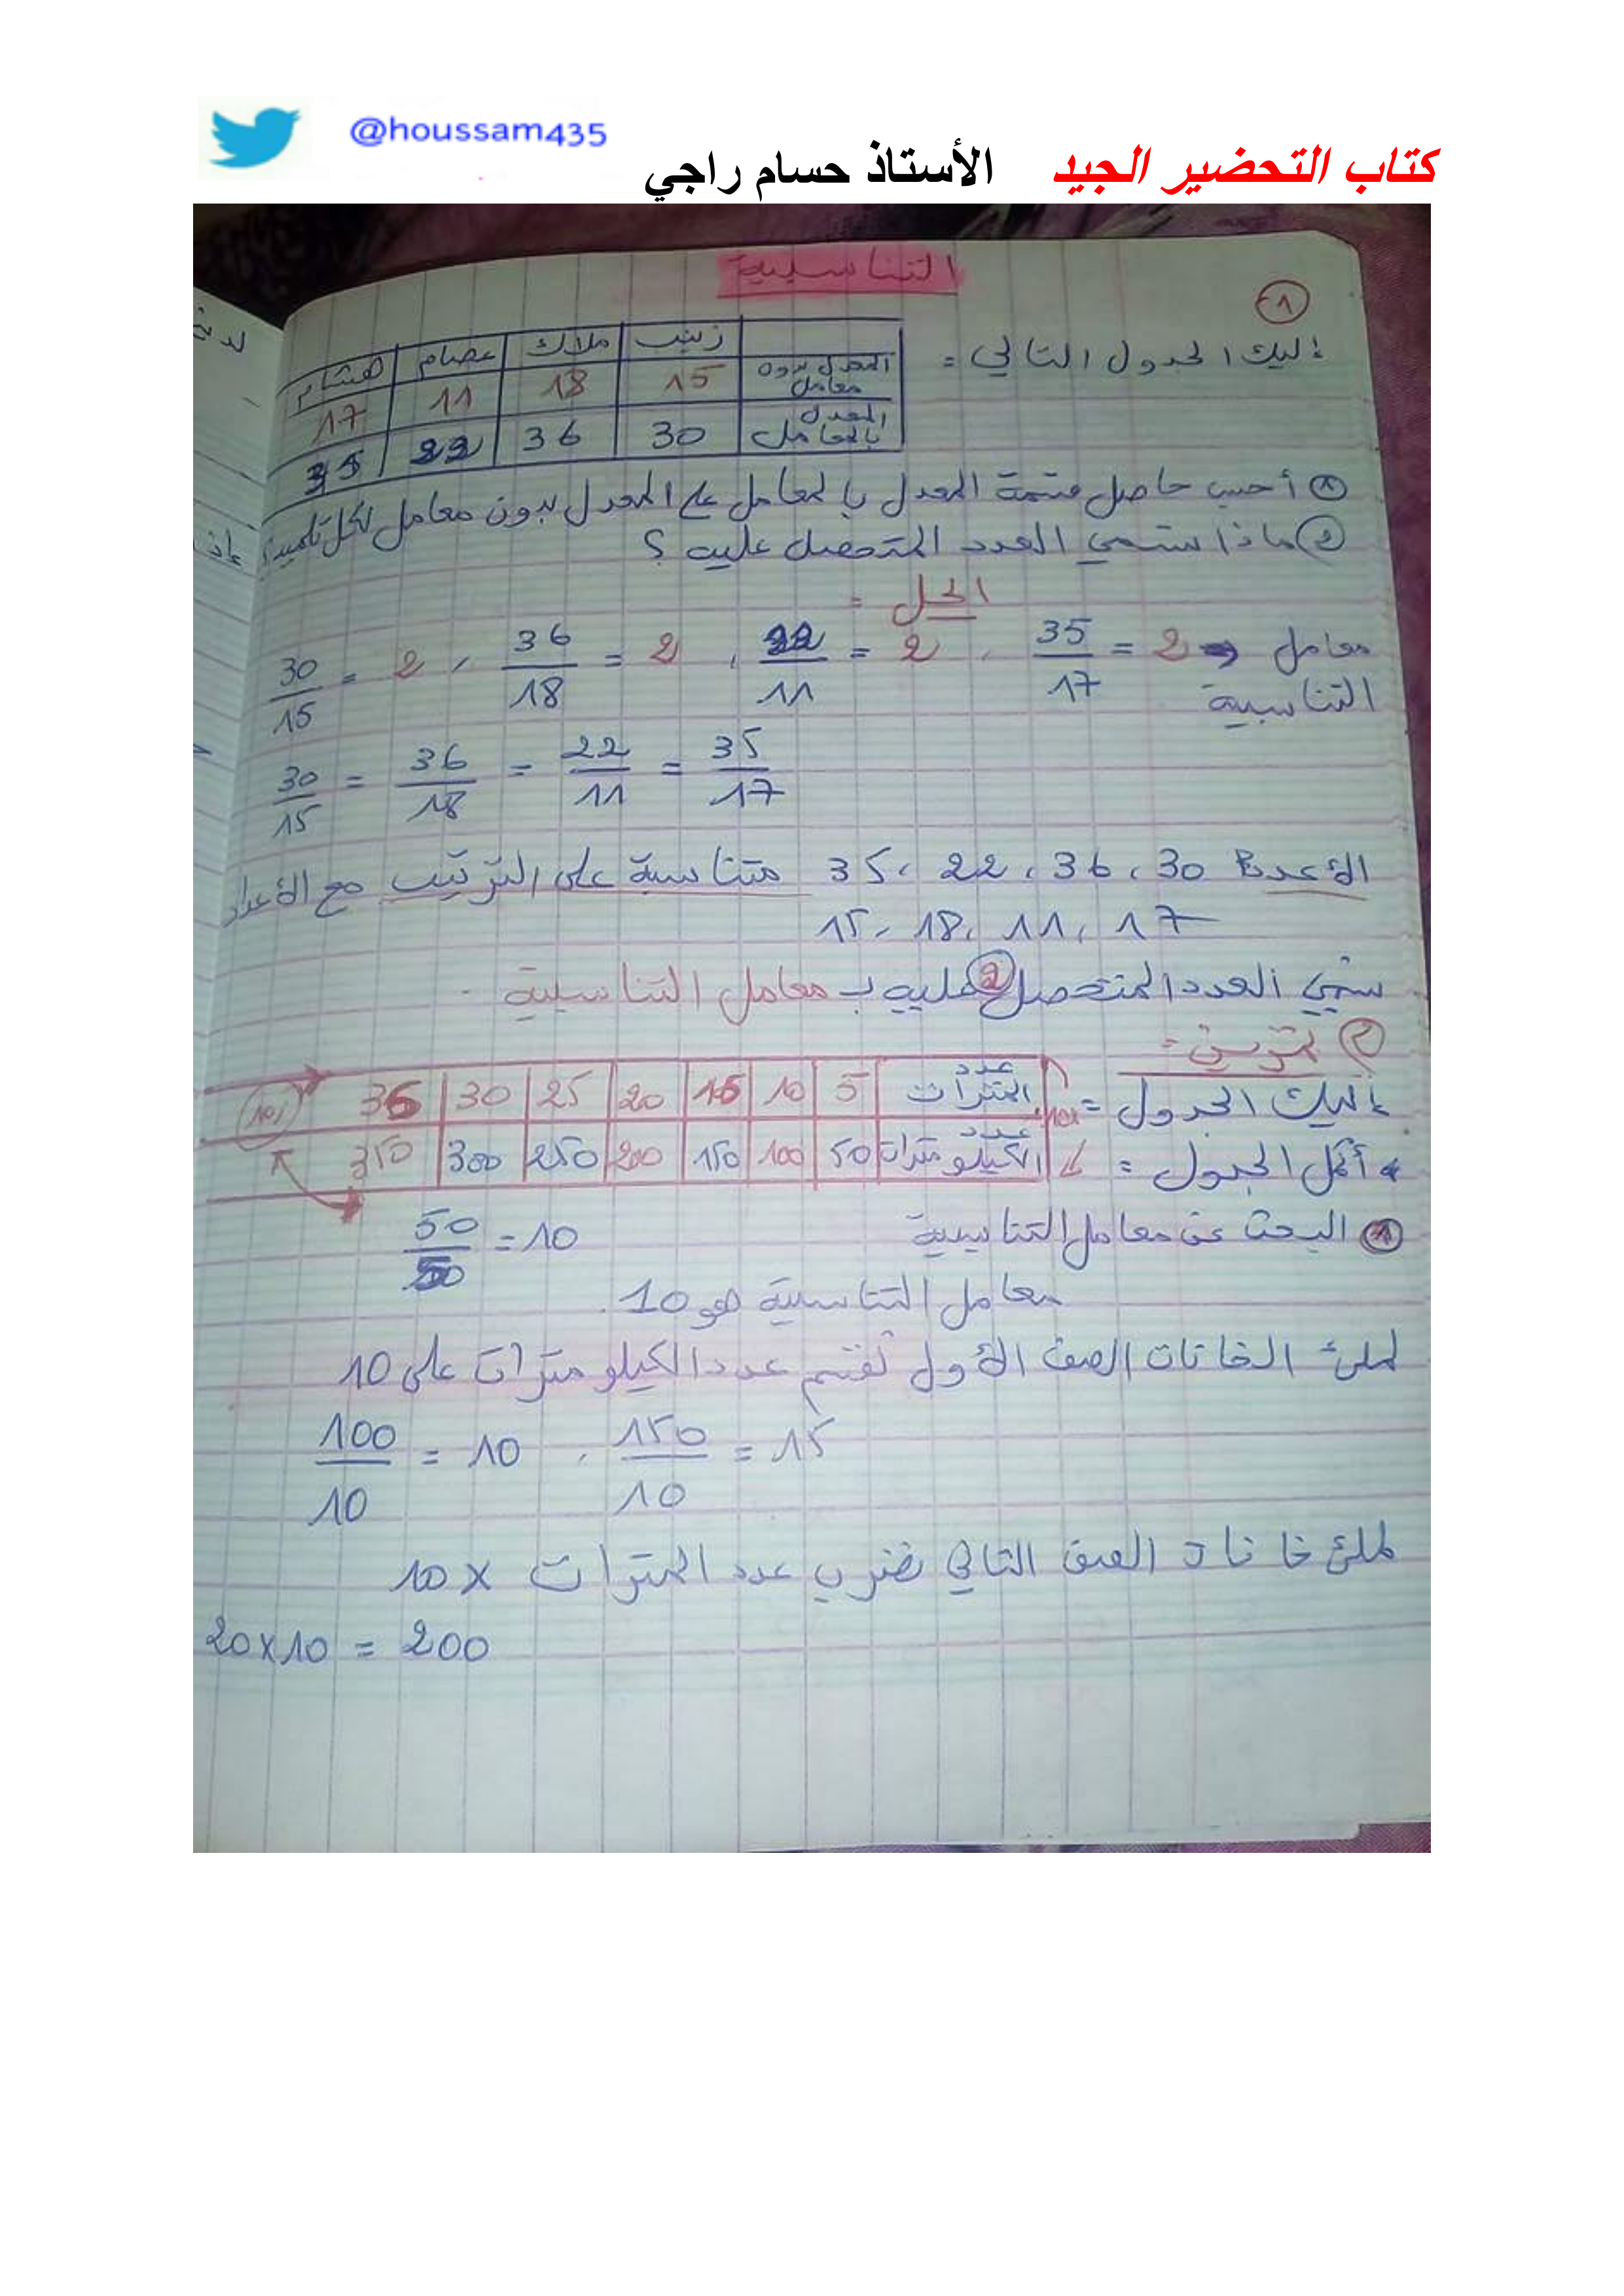 @houssam435
كتاب التحضير الجيد الأستاذ حسام راجي
التناسبية
1
إليك الجدول التالي =
زينب ملاك عصام هشام
المعدل بدون معامل 15 18 11 17
المعدل بالمعامل 30 36 22 35
1 أحسب حاصل قسمة المعدل بالمعامل على المعدل بدون معامل لكل تلميذ؟
2 ماذا نسمي العدد المتحصل عليه ؟
الحل =
30/15 = 2 , 36/18 = 2 , 22/11 = 2 , 35/17 = 2 → معامل التناسبية
30/15 = 36/18 = 22/11 = 35/17
الأعداد 30 ، 36 ، 22 ، 35 متناسبة على الترتيب مع الأعداد
15، 18، 11، 17
نسمي العدد المتحصل عليه 2 بـ معامل التناسبية .
2 تمرين =
إليك الجدول =
عدد المترات 5 10 15 20 25 30 35
أكمل الجدول =
عدد الكيلومترات 50 100 150 200 250 300 350
1 البحث عن معامل التناسبية 50/5 = 10
معامل التناسبية هو 10.
لملئ الخانات الصف الأول نقسم عدد الكيلو مترات على 10
100/10 = 10 , 150/10 = 15
لملئ خانات الصف الثاني نضرب عدد المترات × 10
20×10 = 200